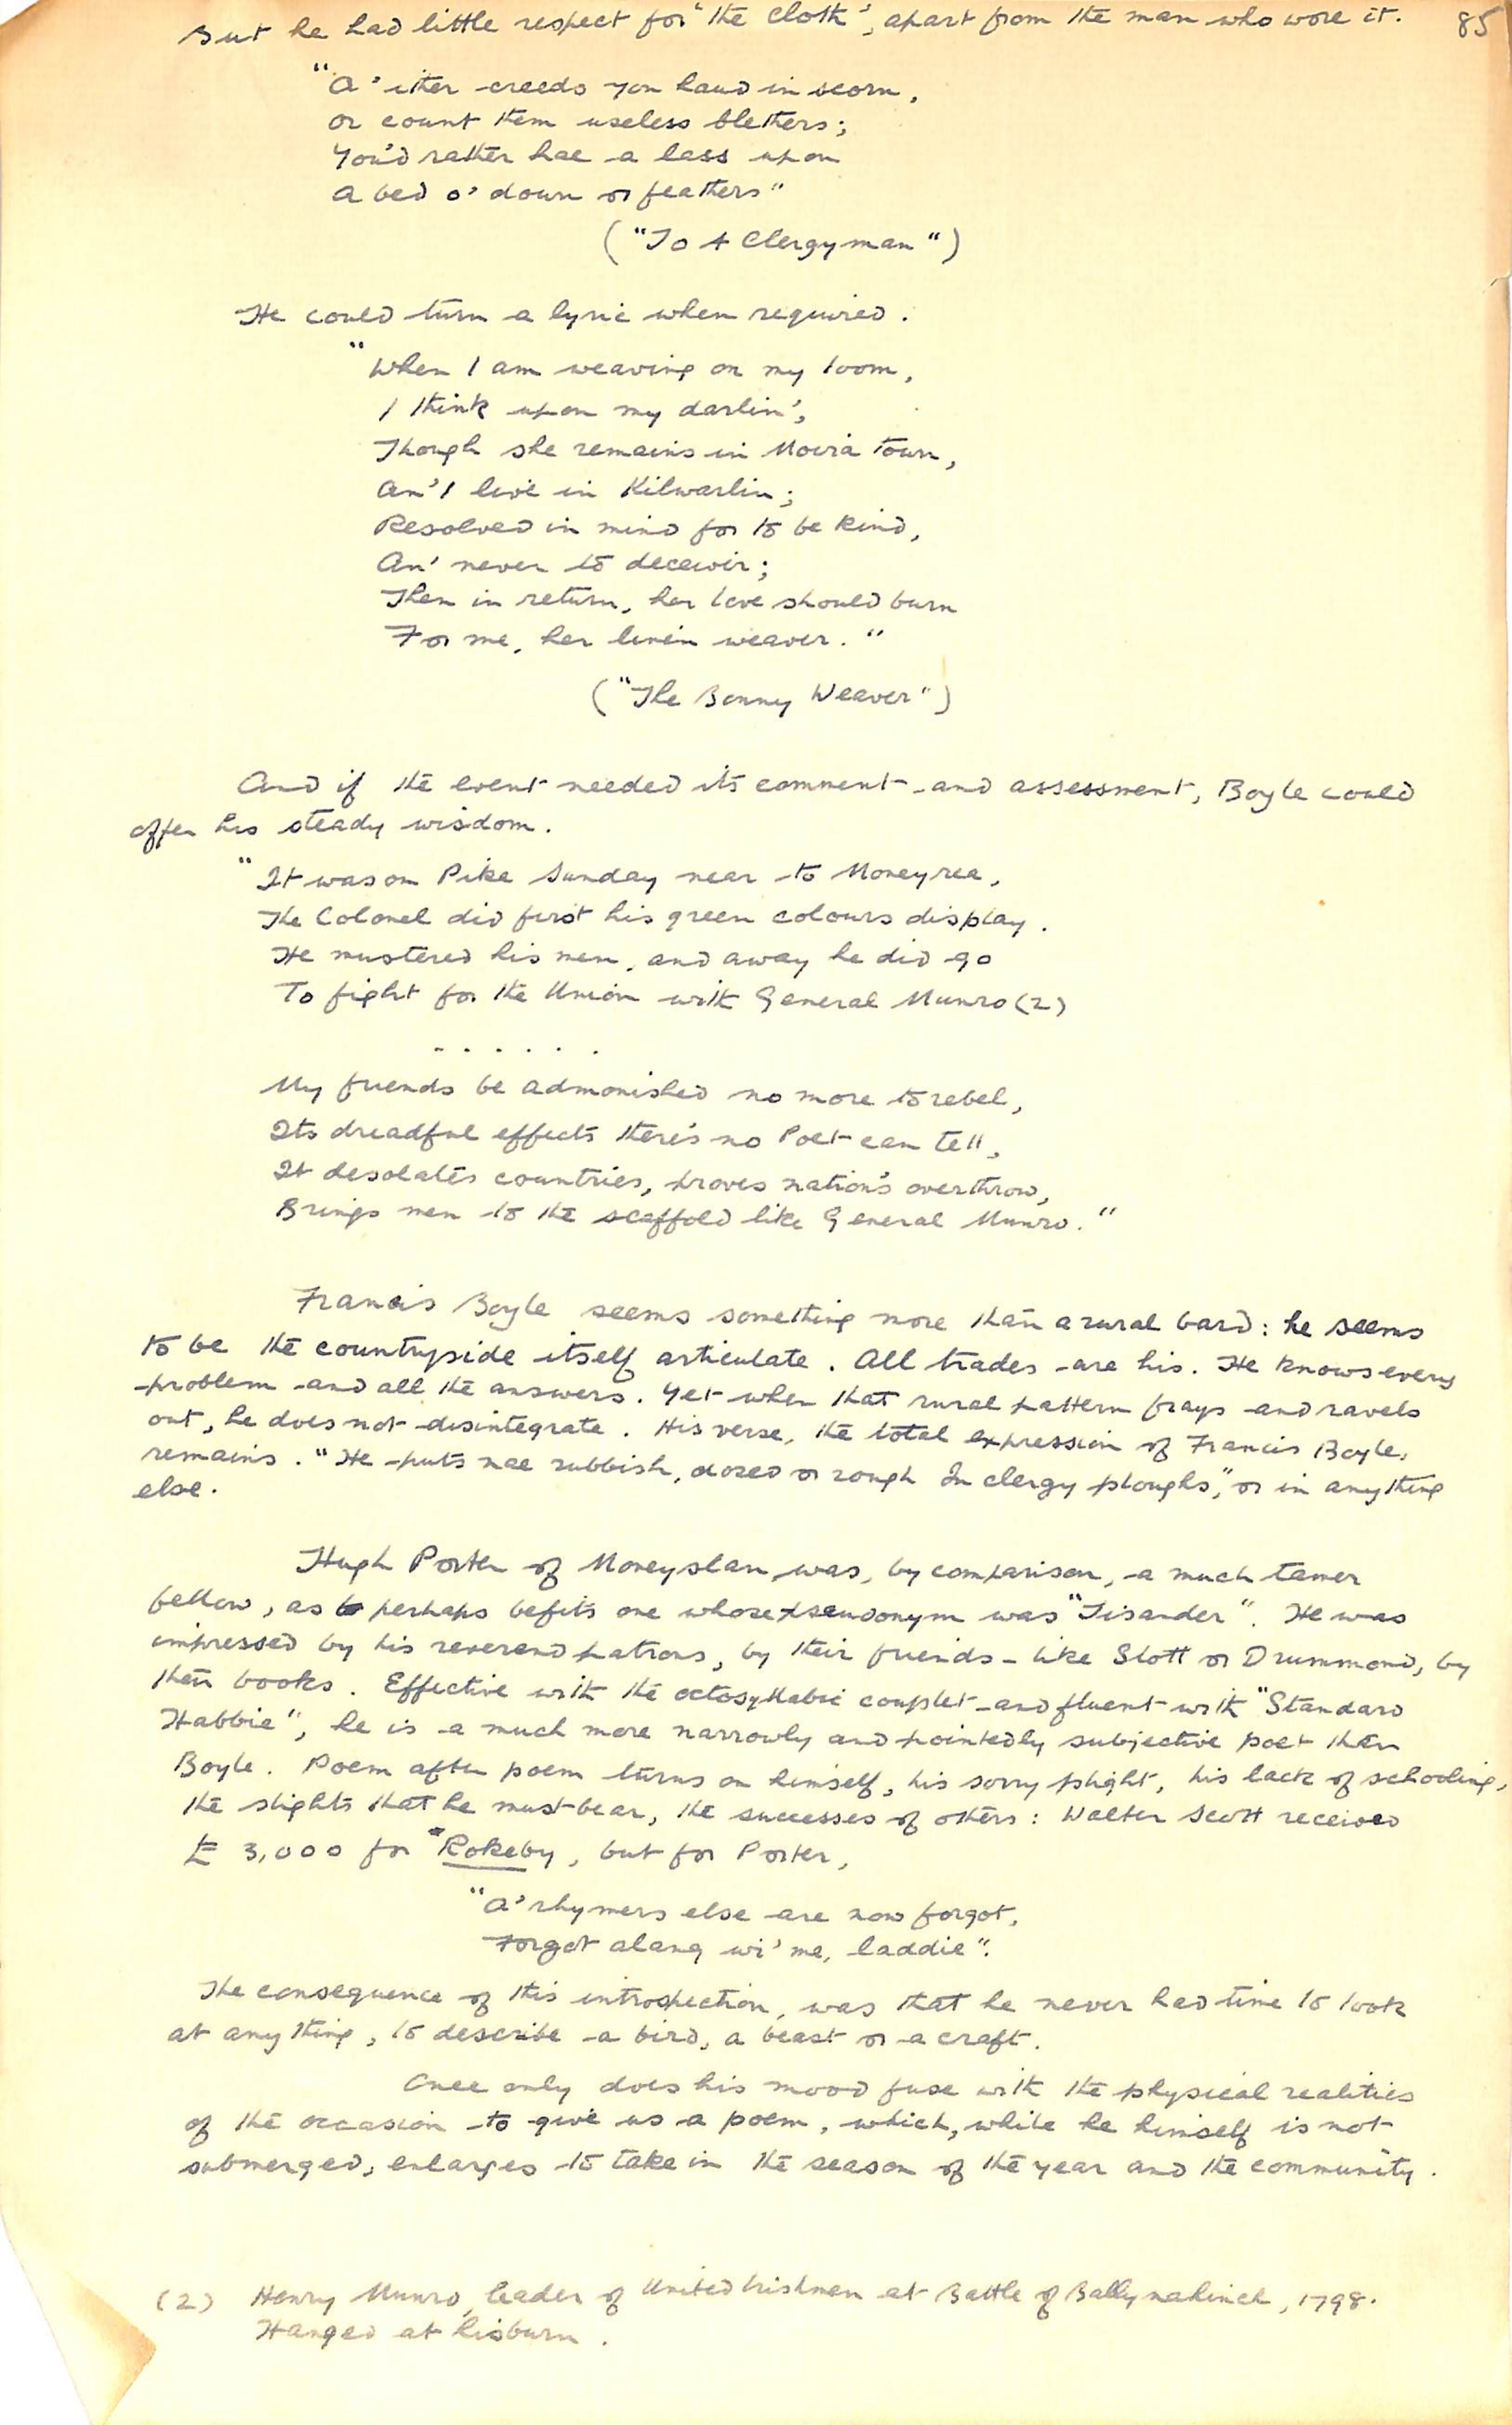 85
But he had little respect for "the cloth", apart from the man who wore it.
"A' ither creeds you haud in scorn,
or count them useless blethers;
You'd rather hae a lass upon
A bed o' down or feathers"
("To A Clergyman")
He could turn a lyric when required.
"When I am weaving on my loom,
I think upon my darlin',
Though she remains in Moira town,
An' I live in Kilwarlin;
Resolved in mind for to be kind,
An' never to deceivir;
Then in return, her love should burn
For me, her linen weaver."
("The Bonny Weaver")
And if the event needed its comment and assessment, Boyle could
offer his steady wisdom.
"It was on Pike Sunday near to Moneyrea,
The Colonel did first his green colours display.
He mustered his men, and away he did go
To fight for the Union with General Munro (2)
. . . . . .
My friends be admonished no more to rebel,
Its dreadful effects there's no Poet can tell,
It desolates countries, proves nation's overthrow,
Brings men to the scaffold like General Munro."
Francis Boyle seems something more than a rural bard: he seems
to be the countryside itself articulate. All trades are his. He knows every
problem and all the answers. Yet when that rural pattern frays and ravels
out, he does not disintegrate. His verse, the total expression of Francis Boyle,
remains. "He puts nae rubbish, dozed or rough In clergy ploughs", or in anything
else.
Hugh Porter of Moneyslan was, by comparison, a much tamer
fellow, as perhaps befits one whose pseudonym was "Tisander". He was
impressed by his reverend patrons, by their friends - like Stott or Drummond, by
their books. Effective with the octosyllabic couplet and fluent with "Standard
Habbie", he is a much more narrowly and pointedly subjective poet than
Boyle. Poem after poem turns on himself, his sorry plight, his lack of schooling,
the slights that he must bear, the successes of others: Walter Scott received
£ 3,000 for "Rokeby, but for Porter,
"A' rhymers else are now forgot,
Forgot alang wi' me, laddie".
The consequence of this introspection, was that he never had time to look
at anything, to describe a bird, a beast or a craft.
Once only does his mood fuse with the physical realities
of the occasion to give us a poem, which, while he himself is not
submerged, enlarges to take in the season of the year and the community.
(2) Henry Munro, leader of United Irishmen at Battle of Ballynahinch, 1798.
Hanged at Lisburn.